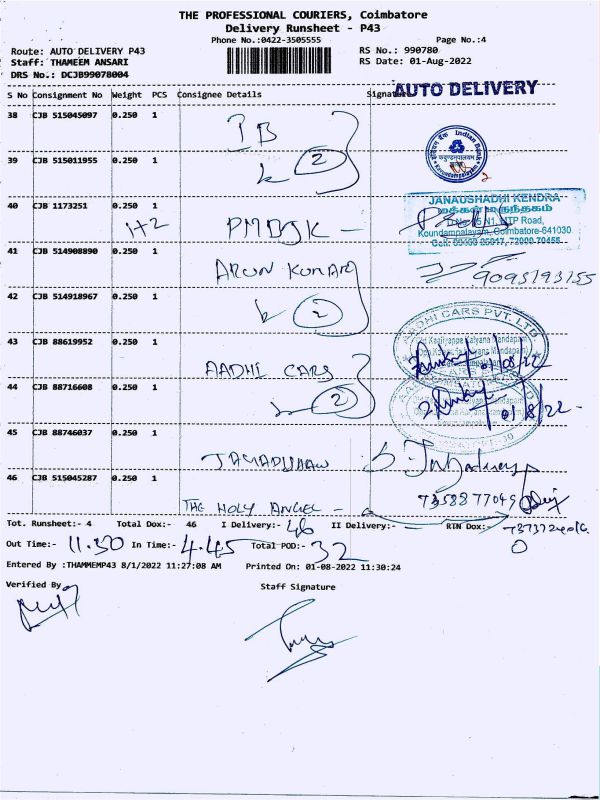 THE PROFESSIONAL COURIERS, Coimbatore
Delivery Runsheet - P43
Phone No.:0422-3505555
Page No.:4
Route: AUTO DELIVERY P43
RS No.: 990780
Staff: THAMEEM ANSARI
RS Date: 01-Aug-2022
DRS No.: DCJB99078004
AUTO DELIVERY
S No Consignment No Weight PCS Consignee Details Signature
38 CJB 515045097 0.250 1 IB
39 CJB 515011955 0.250 1 2
Indian Bank
40 CJB 1173251 0.250 1 PMBJK -
1+2
JANAUSHADHI KENDRA
மக்கள் மருந்தகம்
N1, MTP Road,
Koundampalayam, Coimbatore-641030
41 CJB 514908890 0.250 1 ARUN KUMAR
9095193155
42 CJB 514918967 0.250 1 2
AADHI CARS PVT. LTD.
43 CJB 88619952 0.250 1 AADHI CARS
01/08/22
44 CJB 88716608 0.250 1 2
01/8/22
45 CJB 88746037 0.250 1
46 CJB 515045287 0.250 1 THE HOLY ANGEL -
7358877049
Tot. Runsheet:- 4 Total Dox:- 46 I Delivery:- 46 II Delivery:- RTN Dox:-
0
Out Time:- 11.30 In Time:- 4.45 Total POD:- 32
Entered By :THAMMEMP43 8/1/2022 11:27:08 AM Printed On: 01-08-2022 11:30:24
Verified By
Staff Signature